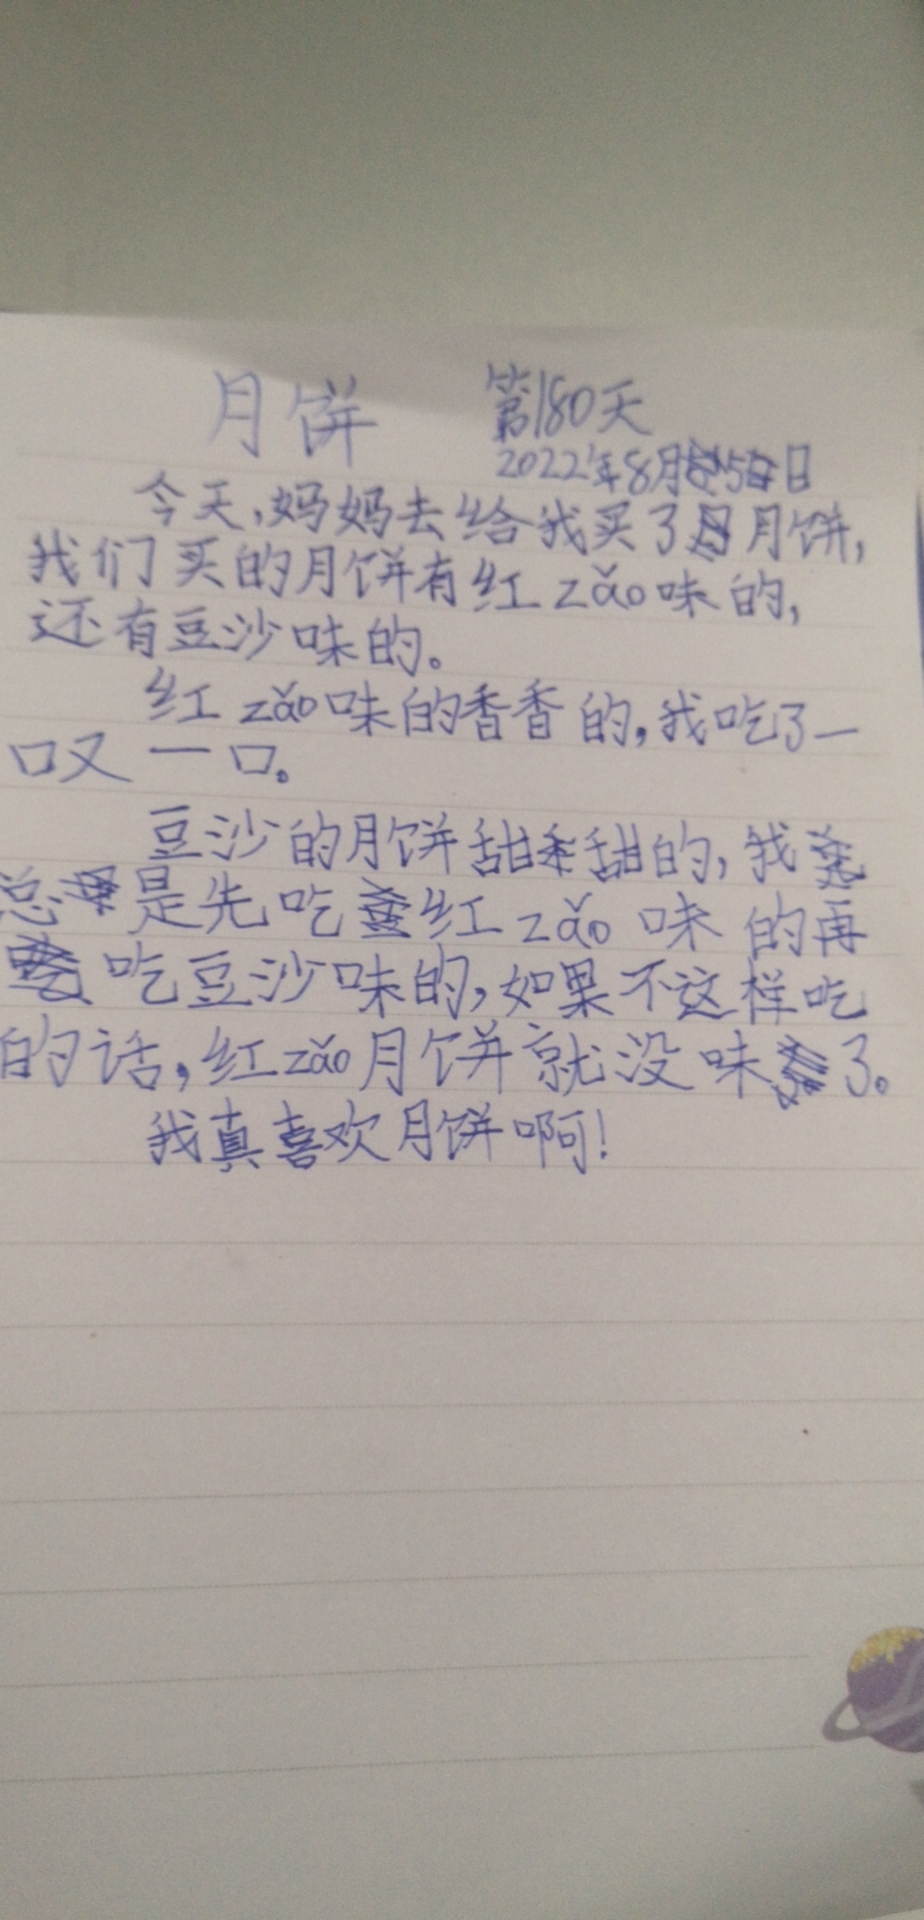 月饼 第180天
2022年8月5日
今天,妈妈去给我买了月饼,
我们买的月饼有红zǎo味的,
还有豆沙味的。
红zǎo味的香香的,我吃了一
口又一口。
豆沙的月饼甜甜的,我
总是先吃红zǎo味的再
吃豆沙味的,如果不这样吃
的话,红zǎo月饼就没味了。
我真喜欢月饼啊!